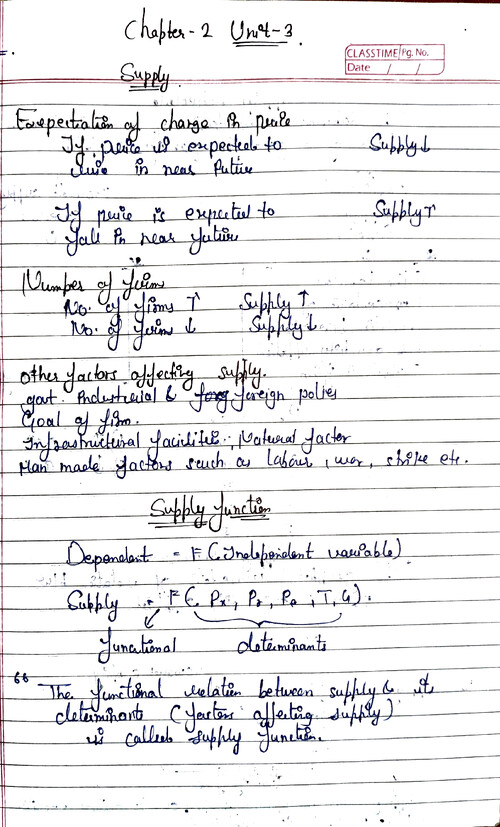 Chapter-2 Unit-3
CLASSTIME Pg. No.
Date / /
Supply
Expectation of change in price
If price is expected to Supply↓
rise in near future
If price is expected to Supply↑
fall in near future
Number of firms
No. of firms ↑ Supply ↑
No. of firms ↓ Supply ↓
Other factors affecting supply.
govt. Industrial & foreign policy
Goal of firm.
Infrastructural facilities, Natural factor
Man made factors such as labour, war, strike etc.
Supply function
Dependent = F (Independent variable)
Supply = F (Px, Pr, Pe, T, G).
functional determinants
The functional relation between supply & it
determinants (factors affecting supply)
is called supply function.